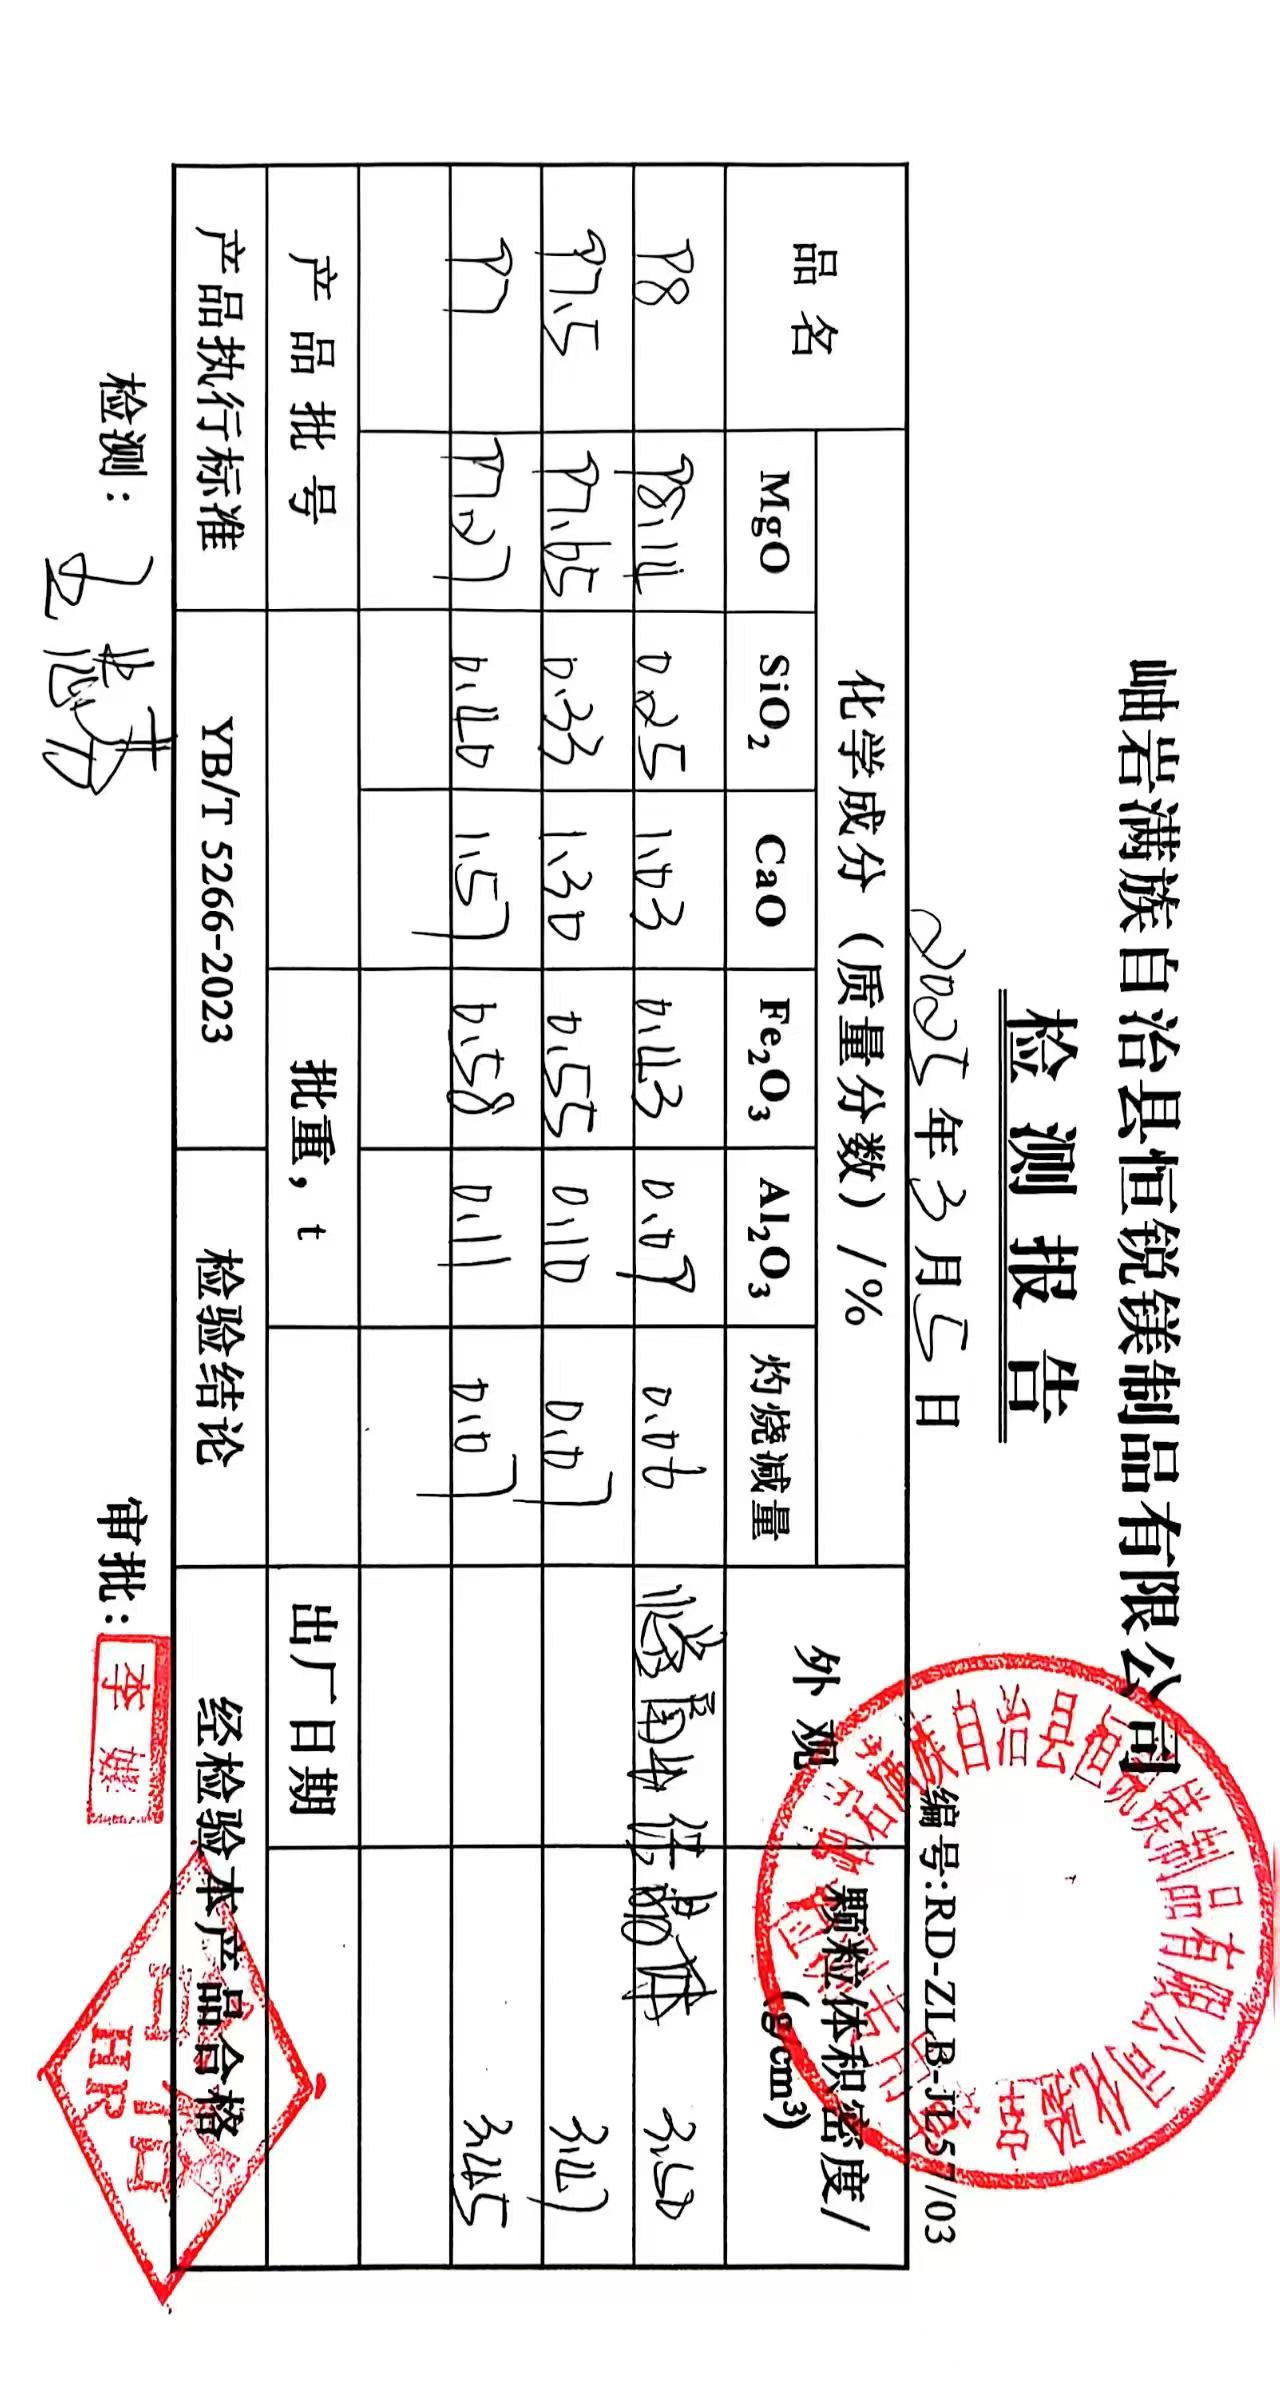 岫岩满族自治县恒锐镁制品有限公司
检测报告
2025年3月5日 编号:RD-ZLB-JL57/03
品名 化学成分（质量分数）/% 外观 颗粒体积密度/(g/cm³)
MgO SiO₂ CaO Fe₂O₃ Al₂O₃ 灼烧减量
98 98.14 0.25 1.03 0.43 0.09 0.06 晶体 3.50
97.5 97.65 0.33 1.30 0.55 0.10 0.07 3.47
97 97.27 0.40 1.57 0.58 0.11 0.07 3.45
产品批号 批重，t 出厂日期
产品执行标准 YB/T 5266-2023 检验结论 经检验本产品合格
检测： 王 审批： 李
岫岩满族自治县恒锐镁制品有限公司化验
HR